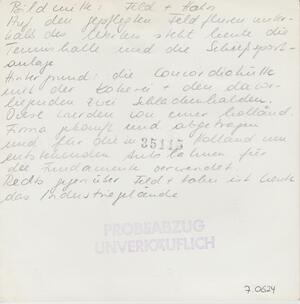 Bildmitte: Feld + Hahn
Auf den gepflegten Feldfluren unter-
halb des Werkes steht heute die
Tennishalle und die Schießsport-
anlage
Hintergrund: die Concordiahütte
mit der Kokerei + den davor-
liegenden zwei Schlackenhalden.
Diese werden von einer holländ.
Firma gekauft und abgetragen
und für die in Holland neu
35115
entstehenden Autobahnen für
die Fundamente verwendet.
Rechts gegenüber Feld + Hahn ist heute
das Industriegelände
PROBEABZUG
UNVERKÄUFLICH
7.0624